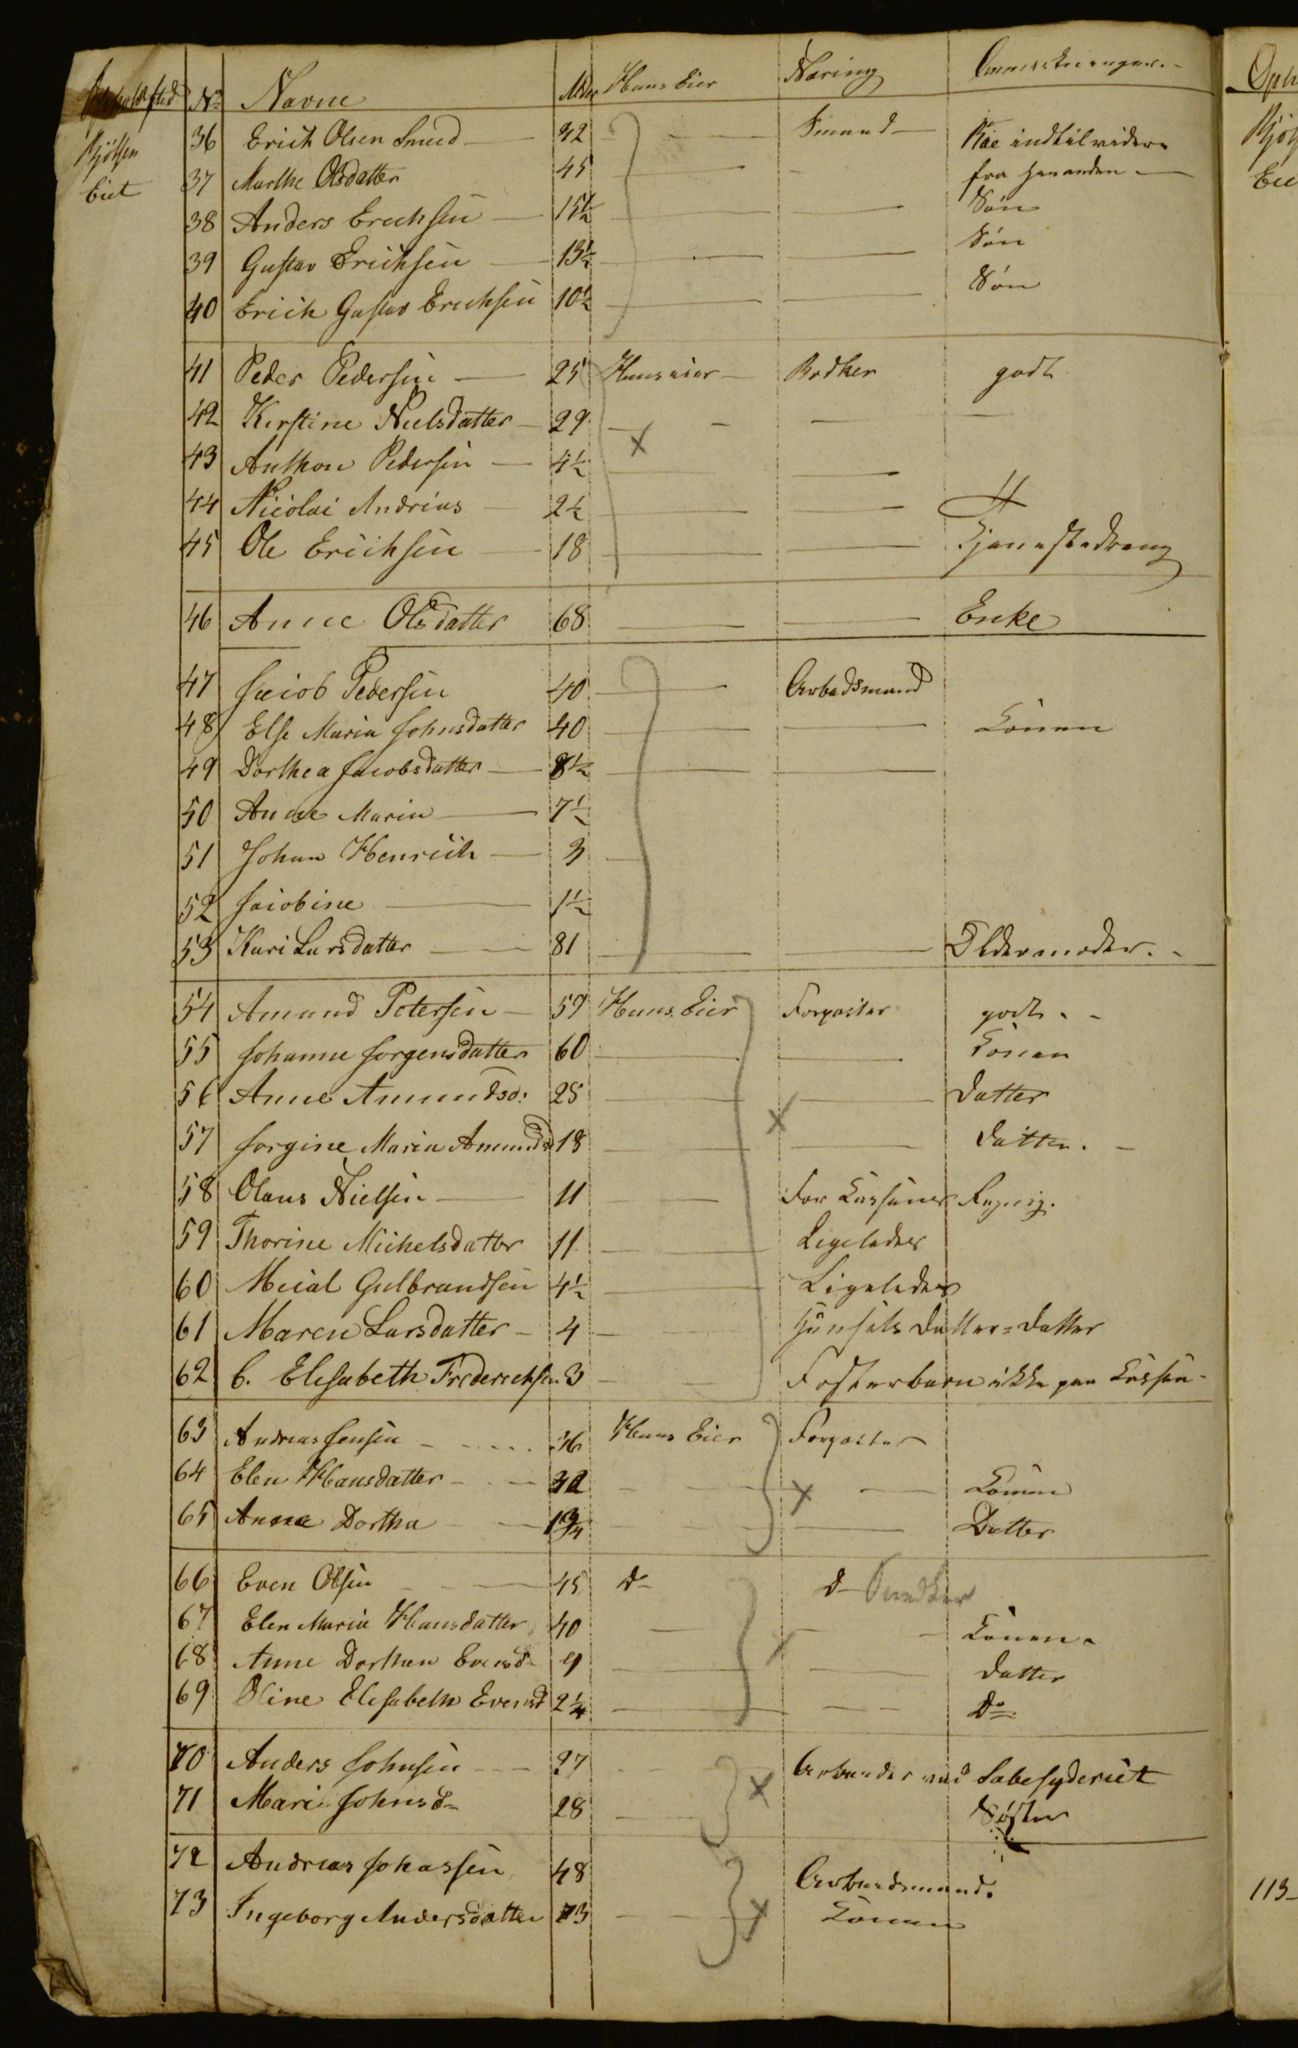 Opholdssted No Navne Alder Huus Eier Næring Anmerkninger.
Bjölsen 36 Erich Olsen Smed — 42 — Smeed — indtil videre
Eiet 37 Marthe Olsdatter 45 — - fra hinanden —
38 Anders Erichsen — 15½ — — Sön
39 Gustav Erichsen — 13½ — — Sön
40 Erich Gustav Erichsen 10½ — — Sön
41 Peder Pedersen — 25 Huuseier — Bødker godt
42 Kirstine Nielsdatter — 29 — — —
43 Anthon Pedersen — 4½ —
44 Nicolai Andreas — 2½ — —
45 Ole Erichsen — 18 — — Tjenestedreng
46 Anne Olsdatter 68 — — Enke
47 Jacob Pedersen 40 — Arbedsmand
48 Else Maria Johnsdatter 40 — — Konen
49 Dorthea Jacobsdatter — 8½ — —
50 Anne Maria — 7½
51 Johan Henrich — 3 —
52 Jacobine — 1½
53 Kari Larsdatter — 81 — — Oldemoder.
54 Amund Petersen — 59 Huus Eier Forpagter godt.
55 Johanne Jorgensdatter 60 — — Konen
56 Anne Amundsd: 25 — — Datter
57 Jorgine Maria Amundsd 18 — — Datter. —
58 Olaus Nielsen — 11 — For Kassens Regnig.
59 Thorine Michelsdatter 11 — Ligeledes
60 Micial Gulbrandsen 4½ — Ligeledes
61 Maren Larsdatter — 4 — Datter=Datter
62 C. Elisabeth Frederichsen 3 — Fosterbarn ikke paa Kassen -
63 Andreas Jensen - 36 Huus Eier Forpagter
64 Elen Hansdatter - 32 - — Konen
65 Anne Dorthea — 1¾ - — Datter
66 Even Olsen — 45 do d—
67 Elen Maria Hansdatter 40 — — Konen.
68 Anne Dorthea Evensd 9 — — Datter
69 Oline Elisabeth Evensd 2¼ — — Do
70 Anders Johnsen — 27 - Arbeider ved Sæbesyderiet
71 Mari Johnsd 28 — Söster
72 Andreas Johassen 48 Arbeidsmand.
73 Ingeborg Andersdatter 73 — Konen
Oph
Bjöl
Eie
113-